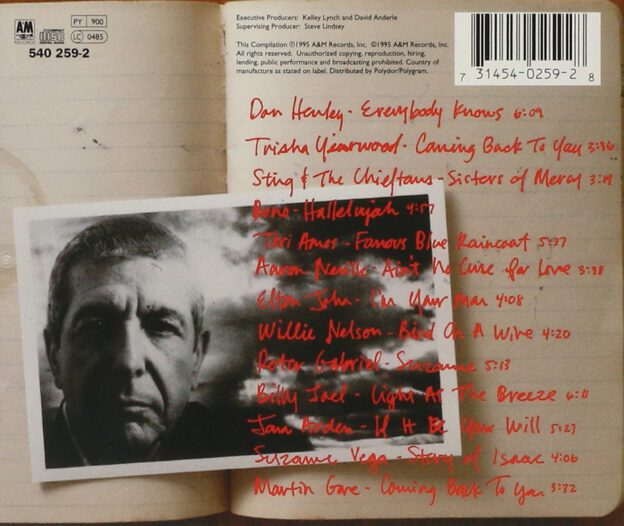 A&M
RECORDS
COMPACT
disc
DIGITAL AUDIO
PY 900
LC 0485
540 259-2
Executive Producers: Kelley Lynch and David Anderle
Supervising Producer: Steve Lindsey
This Compilation ℗1995 A&M Records, Inc. ©1995 A&M Records, Inc.
All rights reserved. Unauthorized copying, reproduction, hiring,
lending, public performance and broadcasting prohibited. Country of
manufacture as stated on label. Distributed by Polydor/Polygram.
7 31454-0259-2 8
Don Henley - Everybody Knows 6:09
Trisha Yearwood - Coming Back To You 3:36
Sting & The Chieftans - Sisters of Mercy 3:19
Bono - Hallelujah 4:57
Tori Amos - Famous Blue Raincoat 5:37
Aaron Neville - Ain't No Cure for Love 3:38
Elton John - I'm Your Man 4:08
Willie Nelson - Bird On A Wire 4:20
Peter Gabriel - Suzanne 5:13
Billy Joel - Light As The Breeze 6:11
Jann Arden - If It Be Your Will 5:27
Suzanne Vega - Story of Isaac 4:06
Martin Gore - Coming Back To You 3:32